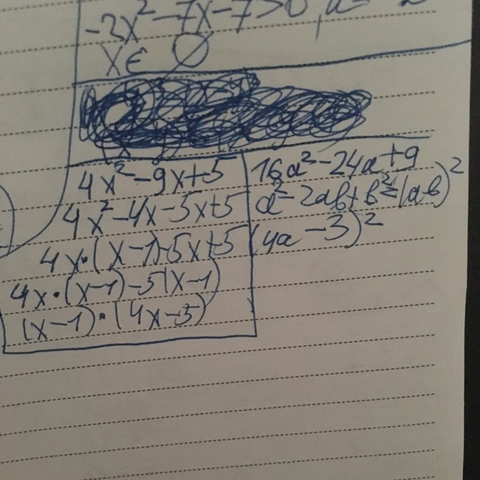 -2x²-7x-7>0
x∈ ∅
4x²-9x+5
4x²-4x-5x+5
4x•(x-1)-5x+5
4x•(x-1)-5(x-1)
(x-1)•(4x-5)
16a²-24a+9
a²-2ab+b²=(ab)²
(4a-3)²